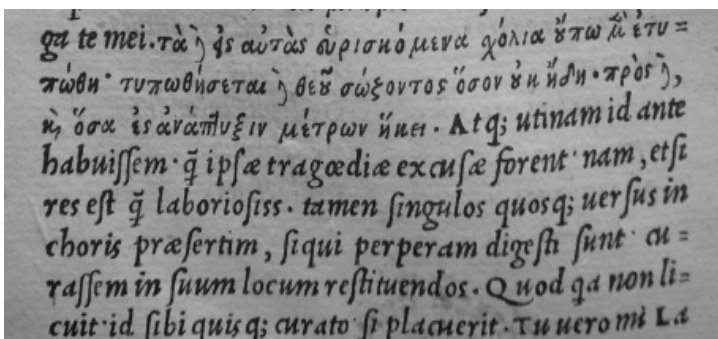 ga te mei. τὰ ἢ ἐς αὐτὰς εὑρισκόμενα χόλια οὔπω μ̃ ἐτυ=
πώθη· τυπωθήσεται ἢ θεοῦ σώζοντος ὅσον οὐκ ἤδη. πρὸς ἢ,
κ̀, ὅσα ἐς ἀνάπτυξιν μέτρων ἥκει. Atq; utinam id ante
habuissem· q̃ ipsæ tragœdiæ excusæ forent· nam, etsi
res est q̃ laboriosiss. tamen singulos quosq; uersus in
choris præsertim, siqui perperam digesti sunt· cu=
rassem in suum locum restituendos. Quod qa non li=
cuit·id sibi quisq; curato si placuerit. Tu uero mi La